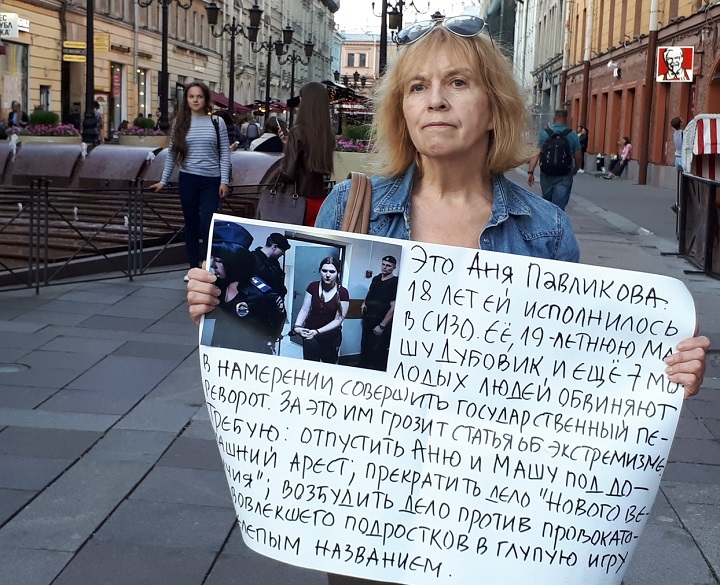 ЭТО АНЯ ПАВЛИКОВА.
18 ЛЕТ ЕЙ ИСПОЛНИЛОСЬ
В СИЗО. ЕЁ, 19-ЛЕТНЮЮ МА-
ШУ ДУБОВИК, И ЕЩЁ 7 МО
ЛОДЫХ ЛЮДЕЙ ОБВИНЯЮТ
В НАМЕРЕНИИ СОВЕРШИТЬ ГОСУДАРСТВЕННЫЙ ПЕ-
РЕВОРОТ. ЗА ЭТО ИМ ГРОЗИТ СТАТЬЯ ОБ ЭКСТРЕМИЗМЕ
ТРЕБУЮ: ОТПУСТИТЬ АНЮ И МАШУ ПОД ДО-
АШНИЙ АРЕСТ; ПРЕКРАТИТЬ ДЕЛО "НОВОГО ВЕ-
ЧИЯ"; ВОЗБУДИТЬ ДЕЛО ПРОТИВ ПРОВОКАТО-
ВОВЛЕКШЕГО ПОДРОСТКОВ В ГЛУПУЮ ИГРУ
ЕЛЕПЫМ НАЗВАНИЕМ.
KFC